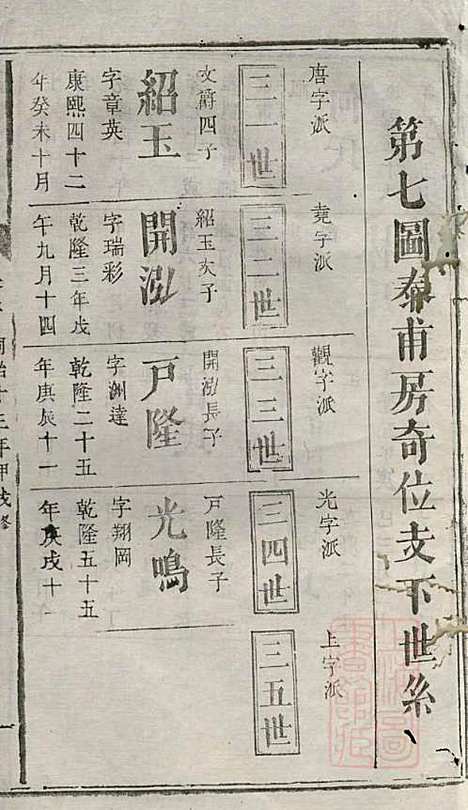 第七圖泰甫房奇位支下世系
唐字派
三一世
文爵四子
紹玉
字章英
康熙四十二
年癸未十月
堯字派
三二世
紹玉次子
開泓
字瑞彩
乾隆三年戊
午九月十四
觀字派
三三世
開泓長子
戸隆
字淵達
乾隆二十五
年庚辰十一
光字派
三四世
戸隆長子
光鳴
字翔岡
乾隆五十五
年庚戌十
上字派
三五世
同治十三年甲戌修